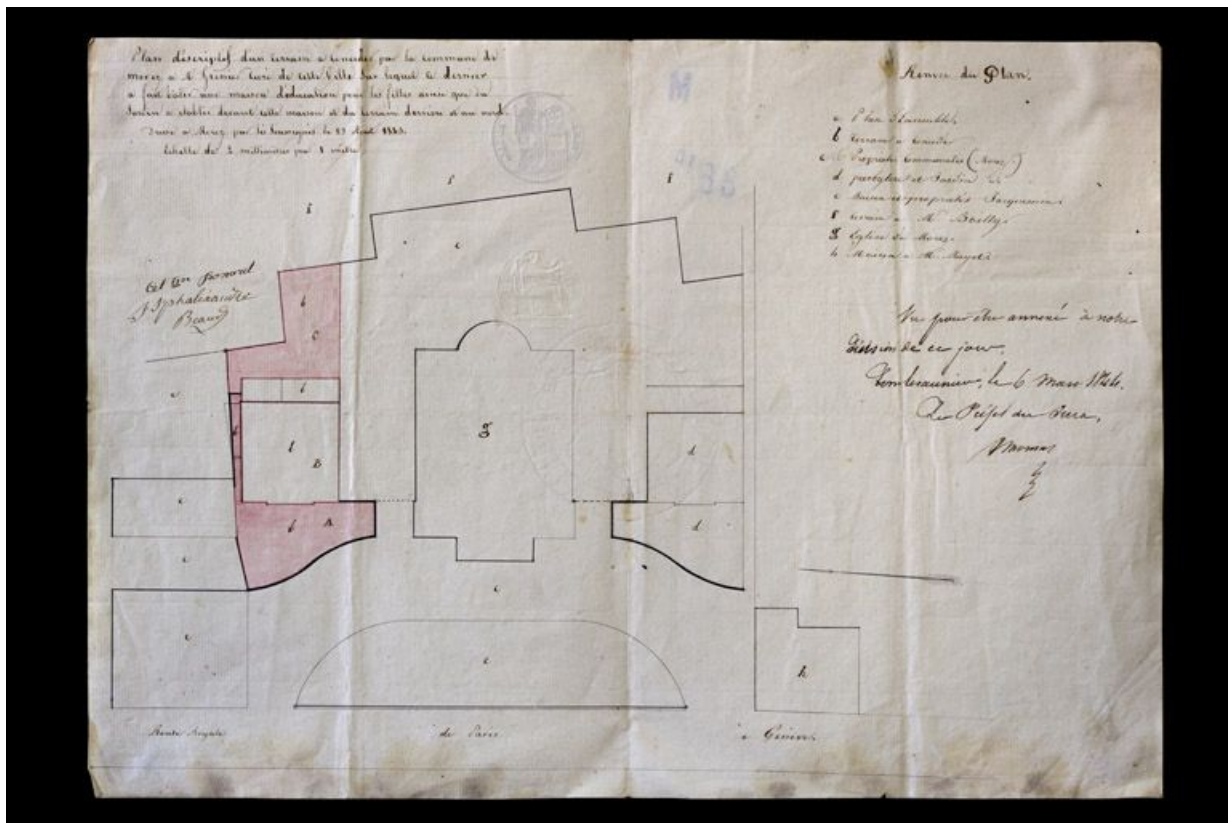 Plan descriptif d'un terrain a conceder par la commune de
morez a M Grenier Curé de cette Ville sur lequel ce dernier
a fait batir une maison d'éducation pour les filles ainsi que du
Jardin a établir devant cette maison et du terrain derriere et au nord
Dressé a Morez par le Soussigné le 23 Aout 1845
Echelle de 2 millimetres pour 1 mètre
Renvoi du Plan.
a Plan d'ensemble
b terrain a conceder
c Proprietés Communales (Morez)
d presbytere et Jardin
e Maison et proprietés Jacquemin
f terrain a Mr Bailly
g Eglise de Morez
h Maison a Mr
Vu pour être annexé à notre
décision de ce jour.
Lons le saunier, le 6 Mars 1846.
Le Préfet du Jura,
M
f
f
f
c
b
C
e
b
b
b
B
g
d
e
b
A
d
e
c
e
c
h
Route Royale
de Paris
à Genève